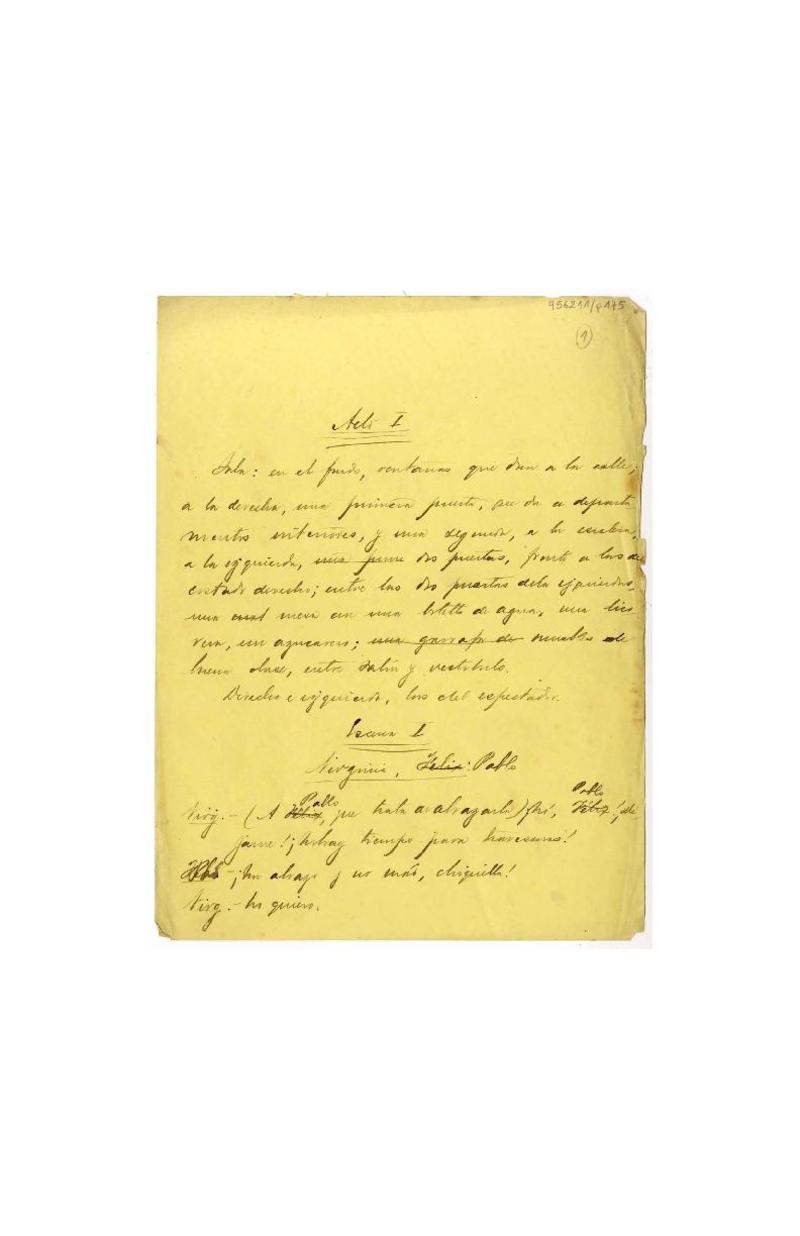 956211/p175
1
Acto I
Sala: en el fondo, ventanas que dan a la calle;
a la derecha, una primera puerta, que da a departa
mentos interiores, y una segunda, a la escalera,
a la izquierda, dos puertas, frente a las del
costado derecho; entre las dos puertas de la izquierda,
una mesa con una botella de agua, una lico
rera, un azucarero; una garrafa de muebles de
buena clase, entre salón y vestíbulo.
Derecha e izquierda, las del espectador.
Escena I
Virginia, Felix: Pablo
Pablo Pablo
Virg.- (A Félix, que trata de abrazarla) ¡No, Félix!; ¡dé
jame!; ¡No hay tiempo para travesuras!
Pbl.- ¡Un abrazo y no más, chiquilla!
Virg.- No quiero.